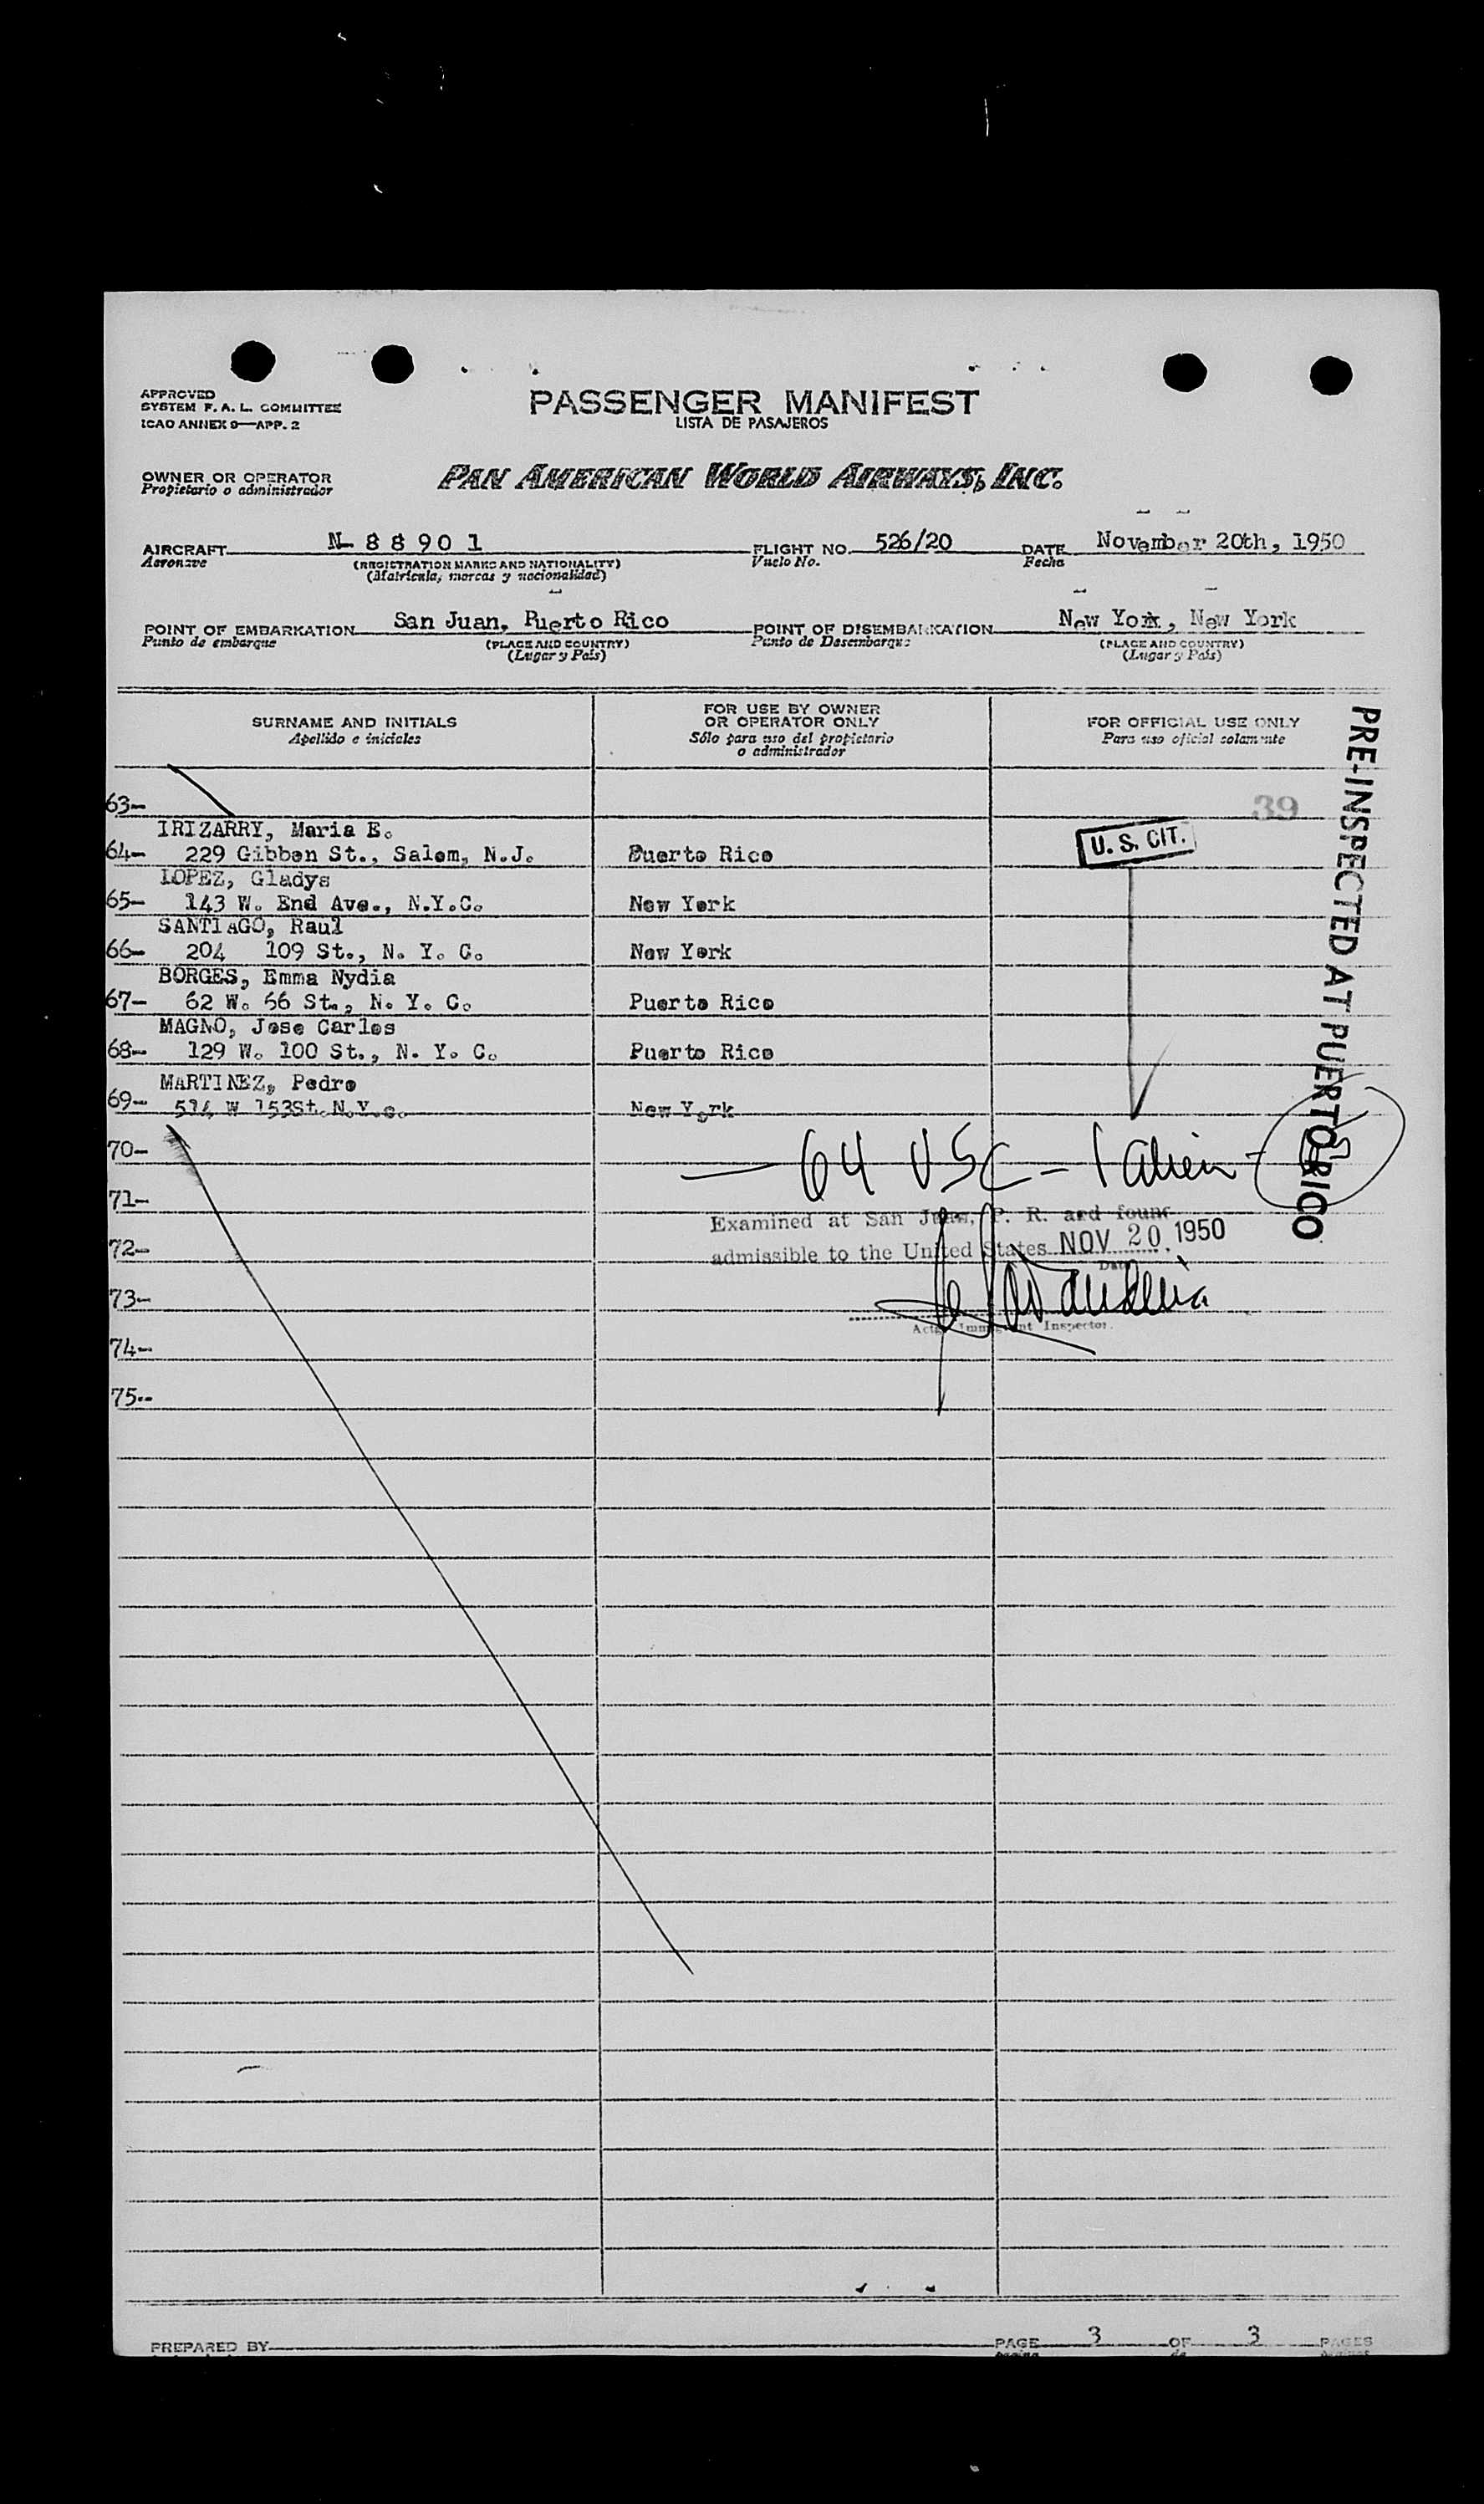 APPROVED
SYSTEM F. A. L. COMMITTEE
ICAO ANNEX 9—APP. 2
PASSENGER MANIFEST
LISTA DE PASAJEROS
OWNER OR OPERATOR
Propietario o administrador
PAN AMERICAN WORLD AIRWAYS, INC.
AIRCRAFT N- 8 8 90 1 FLIGHT NO. 526/20 DATE November 20th, 1950
Aeronave (REGISTRATION MARKS AND NATIONALITY) Vuelo No. Fecha
(Matricula, marcas y nacionalidad)
POINT OF EMBARKATION San Juan, Puerto Rico POINT OF DISEMBARKATION New York, New York
Punto de embarque (PLACE AND COUNTRY) Punto de Desembarque (PLACE AND COUNTRY)
(Lugar y País) (Lugar y País)
SURNAME AND INITIALS
Apellido e iniciales
FOR USE BY OWNER
OR OPERATOR ONLY
Sólo para uso del propietario
o administrador
FOR OFFICIAL USE ONLY
Para uso oficial solamente
PRE-INSPECTED AT PUERTO RICO
63- 39
IRIZARRY, Maria E.
64- 229 Gibbon St., Salem, N.J. Puerto Rico U. S. CIT.
LOPEZ, Gladys
65- 143 W. End Ave., N.Y.C. New York
SANTIAGO, Raul
66- 204 109 St., N. Y. C. New York
BORGES, Emma Nydia
67- 62 W. 66 St., N. Y. C. Puerto Rico
MAGNO, Jose Carlos
68- 129 W. 100 St., N. Y. C. Puerto Rico
MARTINEZ, Pedro
69- 514 W 153St.N.Y.c. New York
70- — 64 USC - 1 alien -
71-
Examined at San Juan, P. R. and found
72- admissible to the United States NOV 20 1950
Date
73-
Actg. Immigrant Inspector.
74-
75--
PREPARED BY PAGE 3 OF 3 PAGES